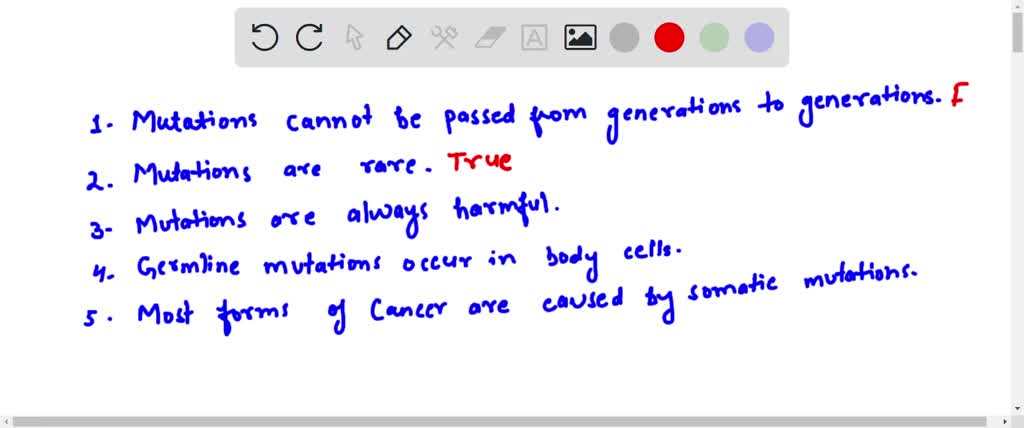 1. Mutations cannot be passed from generations to generations. F
2. Mutations are rare. True
3. Mutations are always harmful.
4. Germline mutations occur in body cells.
5. Most forms of Cancer are caused by somatic mutations.